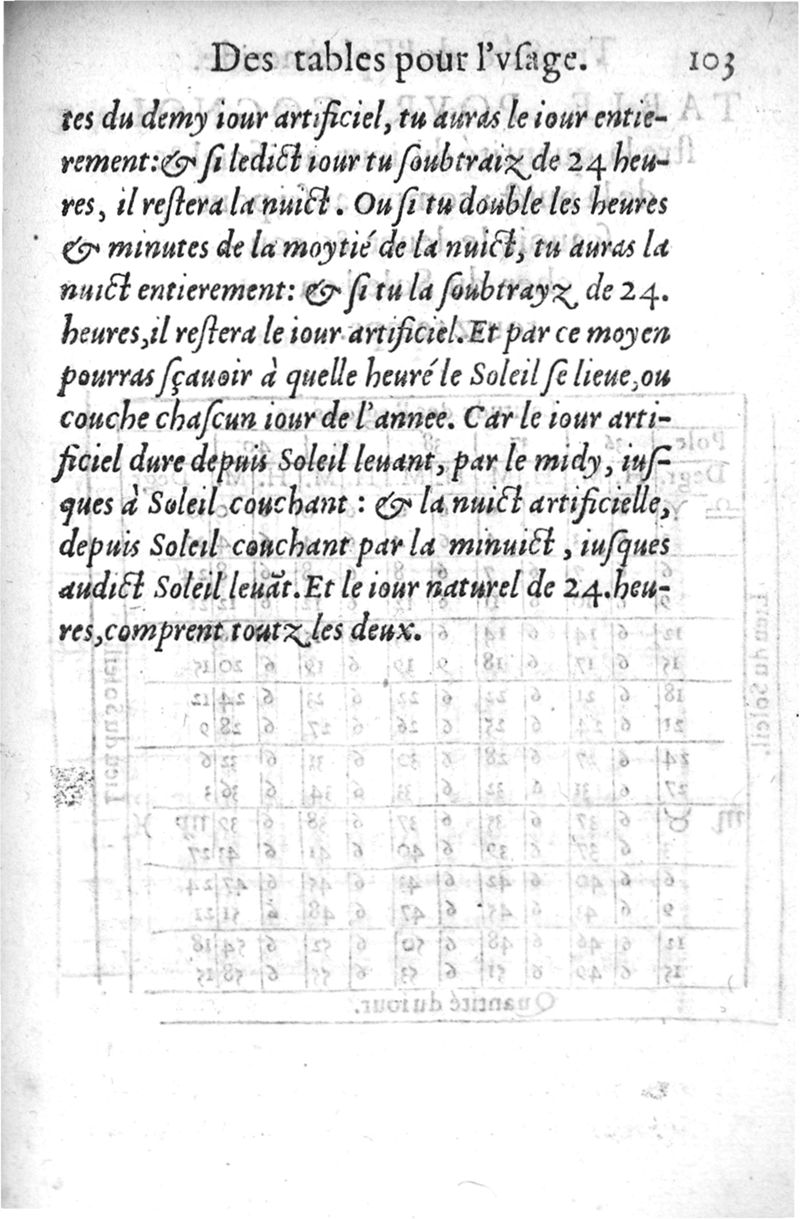 Des tables pour l'vſage. 103
tes du demy iour artificiel, tu auras le iour entie-
rement: & ſi ledict iour tu ſoubtraiz de 24 heu-
res, il reſtera la nuict. Ou ſi tu double les heures
& minutes de la moytié de la nuict, tu auras la
nuict entierement: & ſi tu la ſoubtrayz de 24.
heures, il reſtera le iour artificiel. Et par ce moyen
pourras ſçauoir à quelle heuré le Soleil ſe lieue, ou
couche chaſcun iour de l'annee. Car le iour arti-
ficiel dure depuis Soleil leuant, par le midy, iuſ-
ques à Soleil couchant : & la nuict artificielle,
depuis Soleil couchant par la minuict, iuſques
audict Soleil leuãt. Et le iour naturel de 24. heu-
res, comprent toutz les deux.